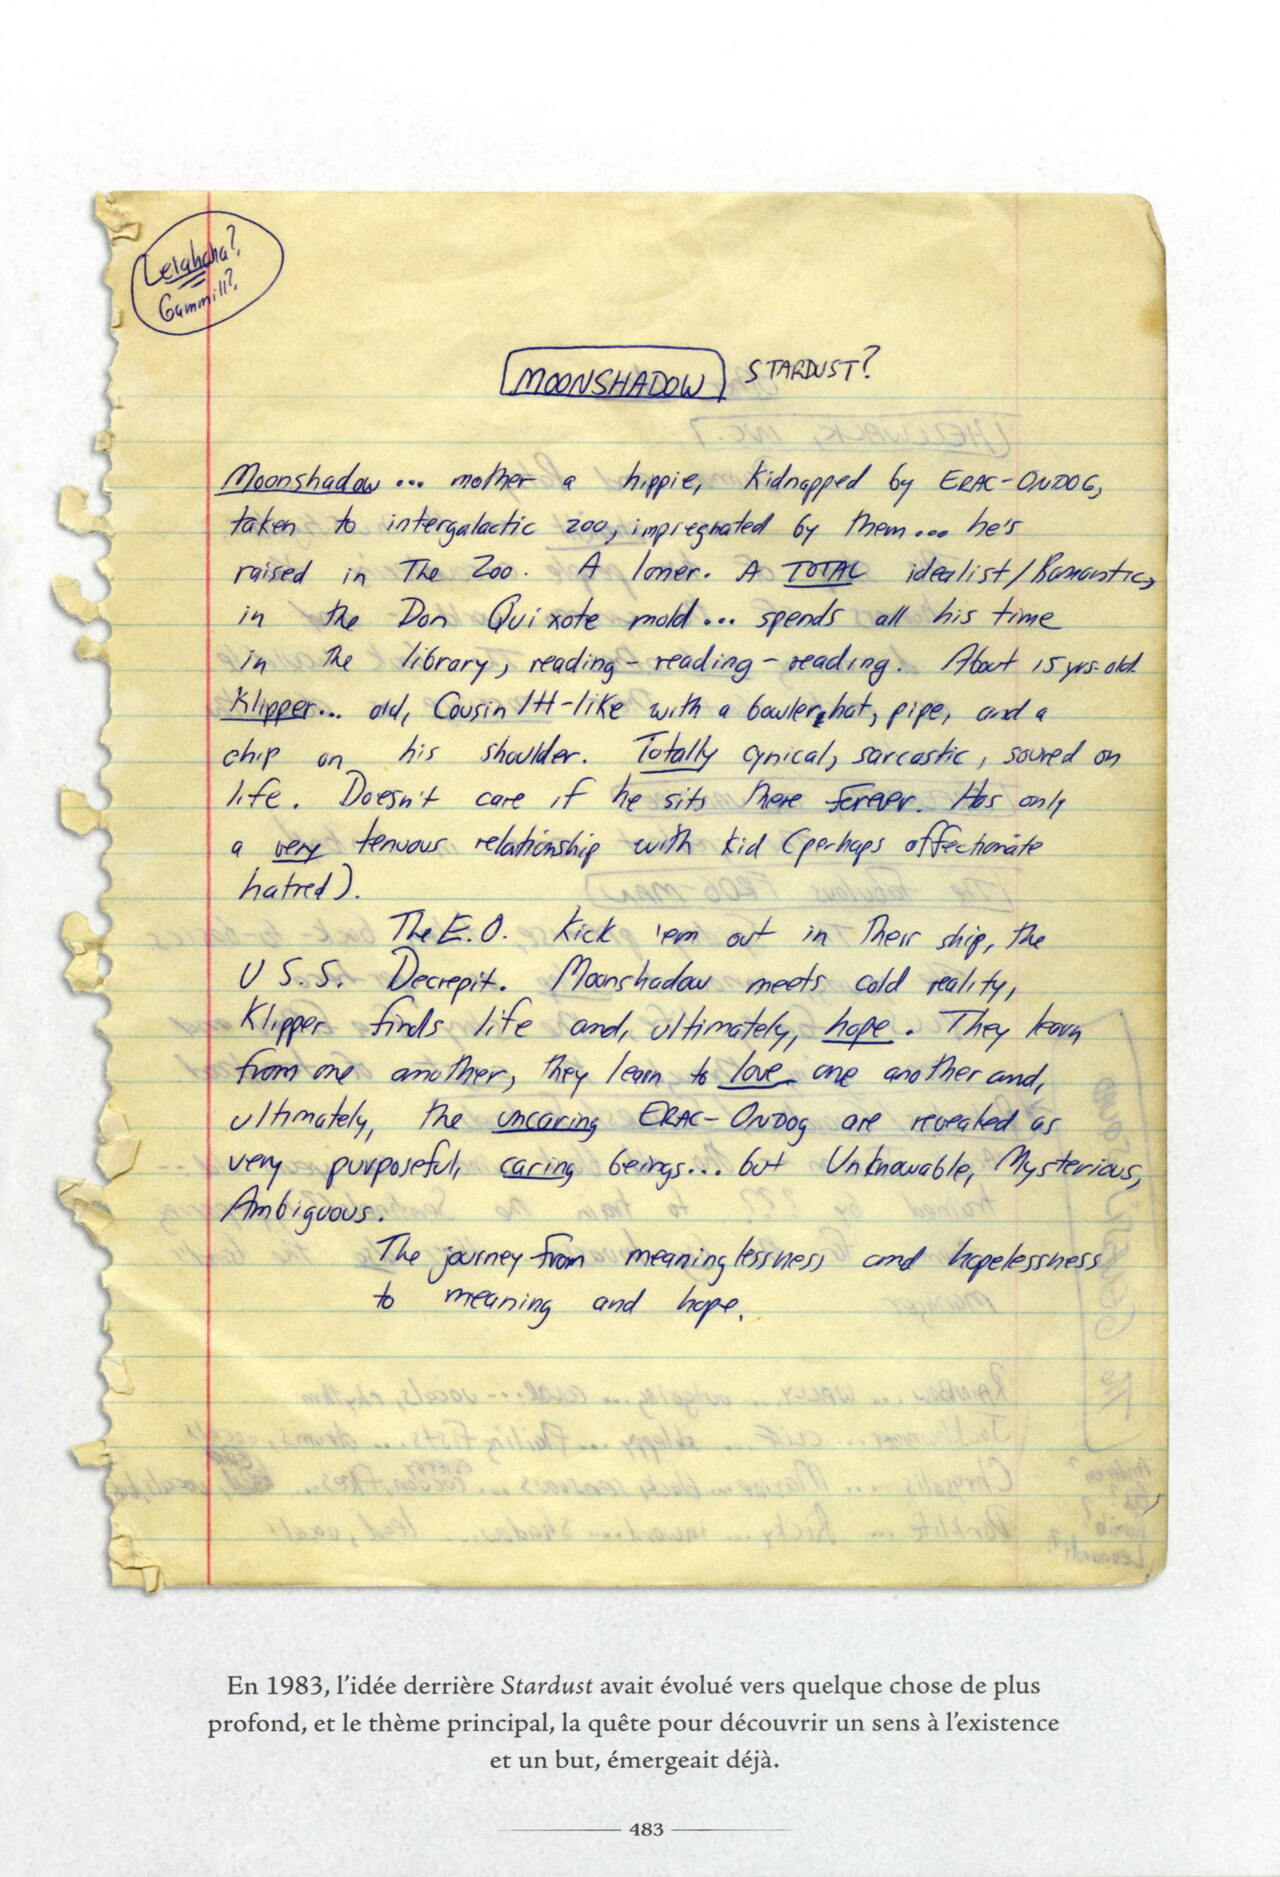 Lerahaha?
Gammill?
MOONSHADOW STARDUST?
Moonshadow ... mother a hippie, kidnapped by ERAC-ONDOG,
taken to intergalactic zoo, impregnated by them... he's
raised in The Zoo. A loner. A TOTAL idealist/Romantic,
in the Don Quixote mold... spends all his time
in the library, reading-reading-reading. About 15 yrs-old.
Klipper... old, Cousin ITT-like with a bowler hat, pipe, and a
chip on his shoulder. Totally cynical, sarcastic, soured on
life. Doesn't care if he sits there forever. Has only
a very tenuous relationship with kid (perhaps affectionate
hatred).
The E.O. kick 'em out in their ship, the
U.S.S. Decrepit. Moonshadow meets cold reality,
Klipper finds life and, ultimately, hope. They learn
from one another, they learn to love one another and,
ultimately, the uncaring ERAC-ONDOG are revealed as
very purposeful, caring beings... but Unknowable, Mysterious,
Ambiguous.
The journey from meaninglessness and hopelessness
to meaning and hope.
En 1983, l'idée derrière Stardust avait évolué vers quelque chose de plus
profond, et le thème principal, la quête pour découvrir un sens à l'existence
et un but, émergeait déjà.
483